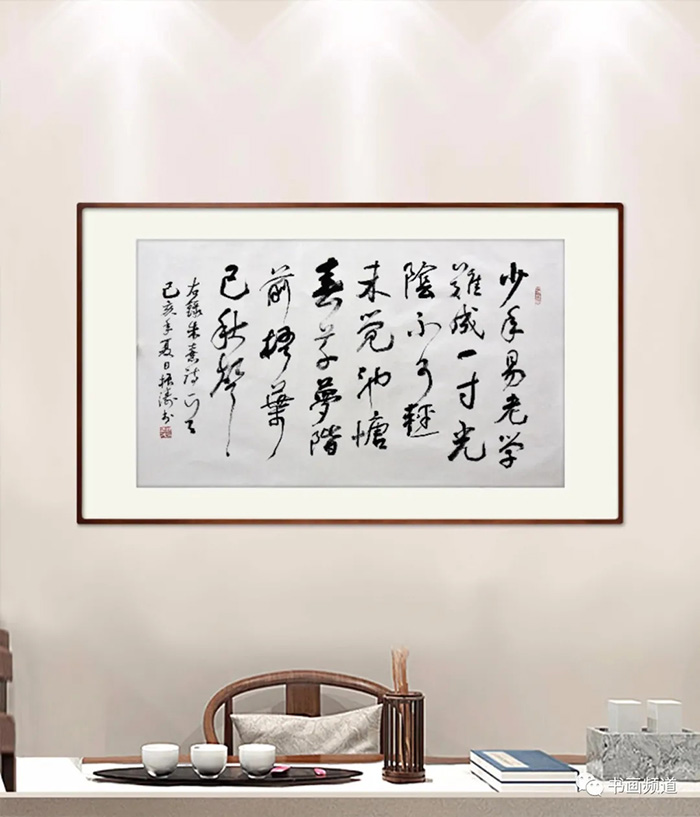 少年易老学
難成一寸光
陰不可輕
未觉池塘
春草夢階
前梧葉
已秋聲
右録朱熹诗一首
己亥年夏日振涛书
书画频道